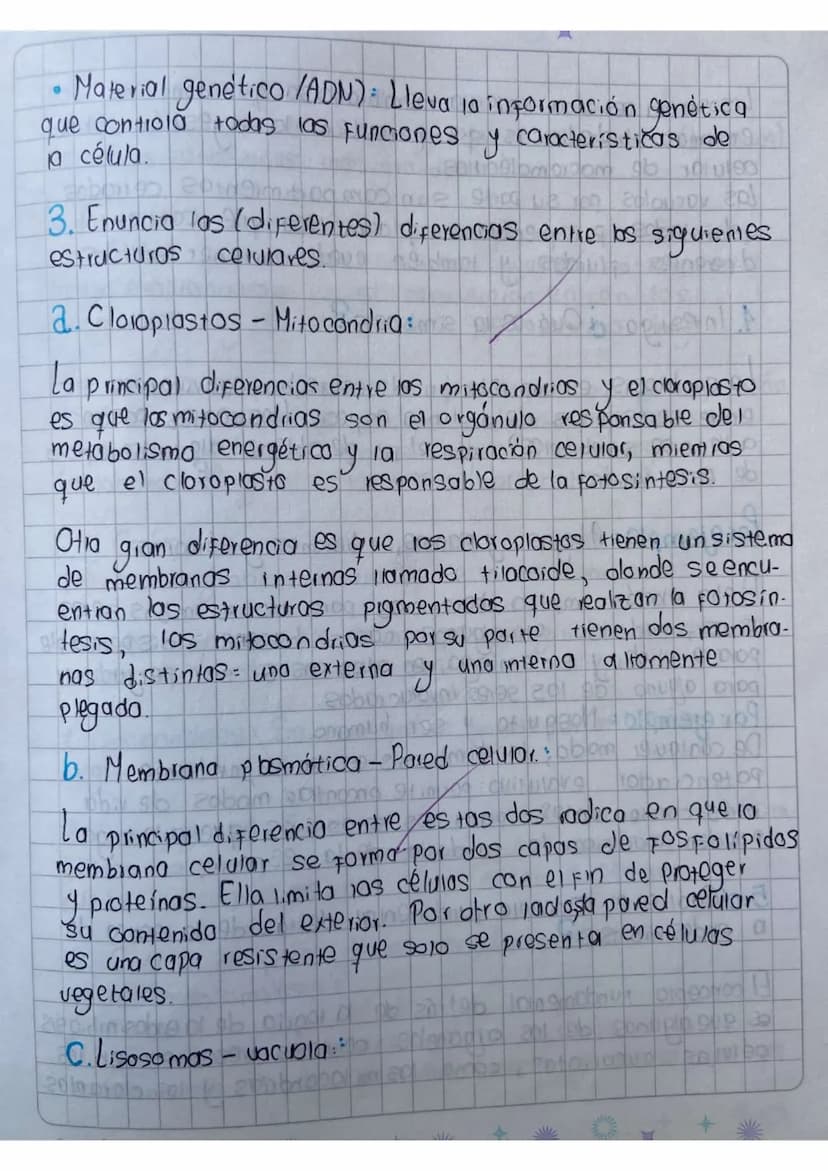 • Material genético (ADN): Lleva la información genética
que controla todas las funciones y características de
la célula.
3. Enuncia las (diferentes) diferencias entre las siguientes
estructuras celulares.
a. Cloroplastos - Mitocondria:
La principal diferencias entre las mitocondrias y el cloroplasto
es que las mitocondrias son el orgánulo responsable del
metabolismo energético y la respiración celular, mientras
que el cloroplasto es responsable de la fotosíntesis.
Otra gran diferencia es que los cloroplastos tienen un sistema
de membranas internas llamado tilacoide, donde se encu-
entran las estructuras pigmentadas que realizan la fotosín-
tesis, las mitocondrias por su parte tienen dos membra-
nas distintas: una externa y una interna altamente
plegada.
b. Membrana plasmática - Pared celular.:
La principal diferencia entre estas dos radica en que la
membrana celular se forma por dos capas de fosfolípidos
y proteínas. Ella limita las células con el fin de proteger
su contenido del exterior. Por otro lado la pared celular
es una capa resistente que solo se presenta en células
vegetales.
C. Lisosomas - vacuola: